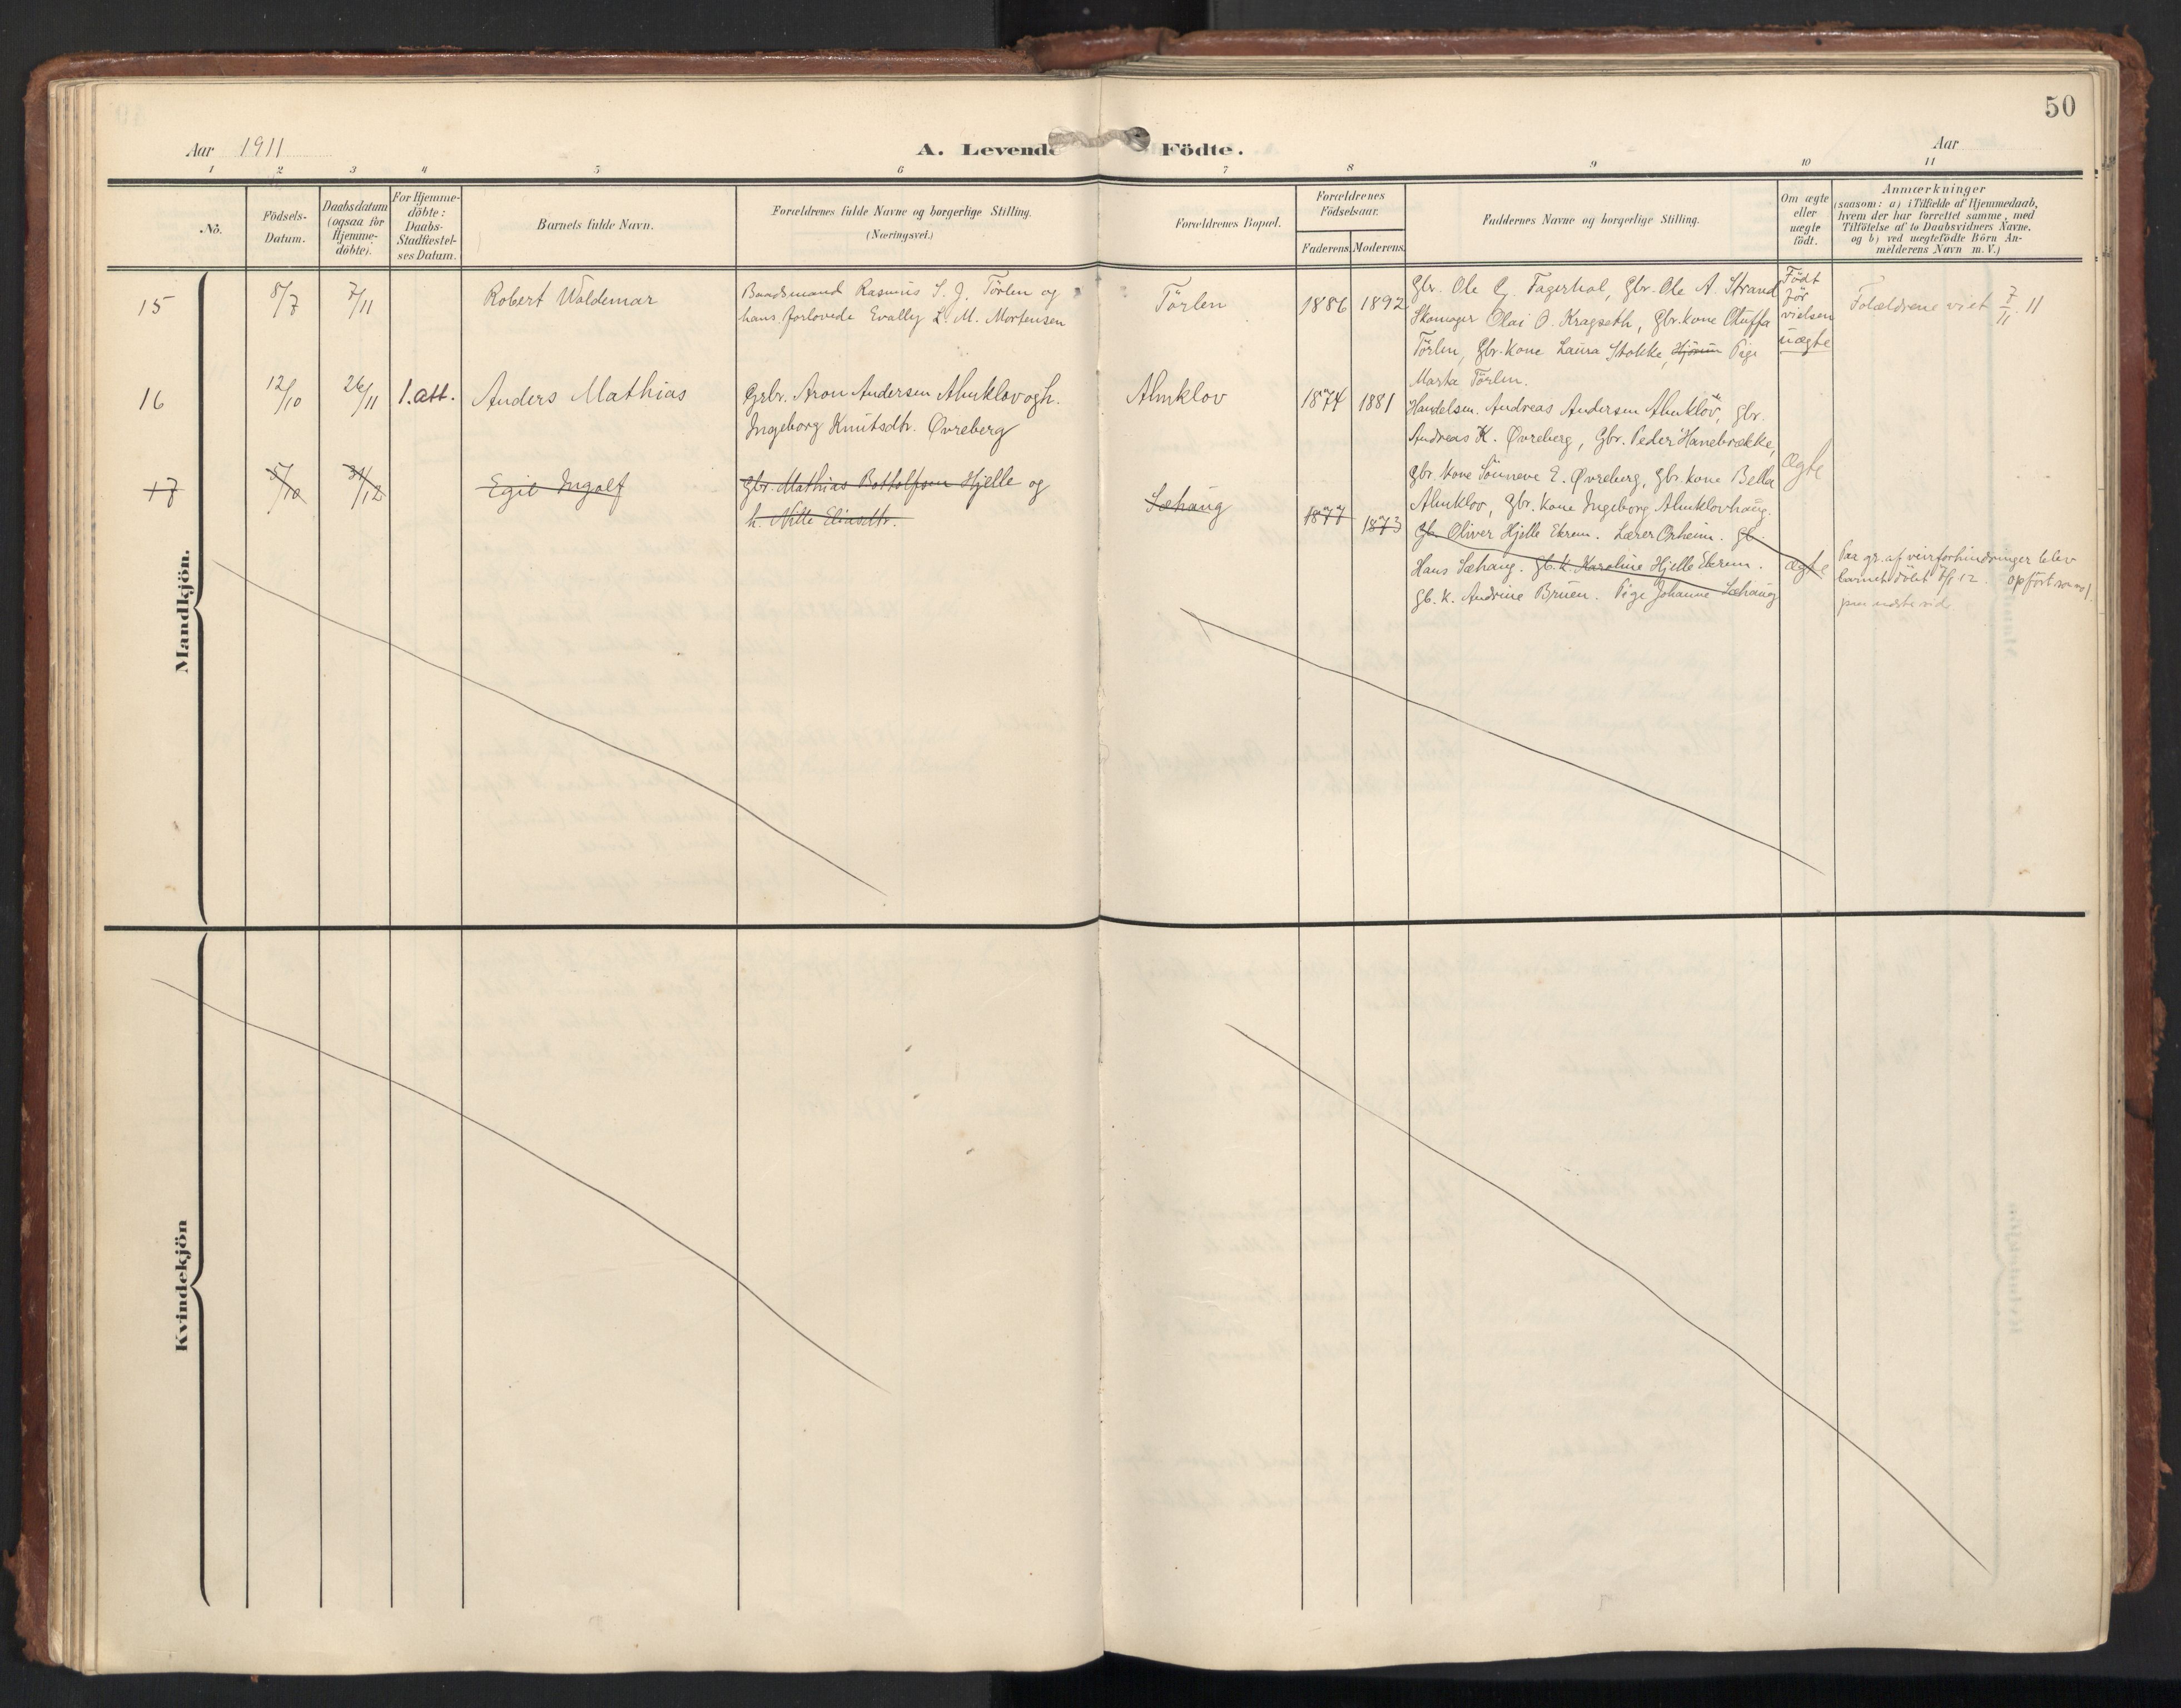 50
Aar 1911
A. Levende Födte.
Aar
1 2 3 4 5 6 7 8 9 10 11
No.
Födsels-
Datum.
Daabsdatum
(ogsaa for
Hjemme-
döbte).
For Hjemme-
döbte:
Daabs-
Stadfæstel-
ses Datum.
Barnets fulde Navn.
Forældrenes fulde Navne og borgerlige Stilling.
(Næringsvei.)
Forældrenes Bopæl.
Forældrenes
Födselsaar.
Faderens. Moderens.
Faddernes Navne og borgerlige Stilling.
Om ægte
eller
uægte
födt.
Anmærkninger
(saasom: a) i Tilfælde af Hjemmedaab,
hvem der har forrettet samme, med
Tilföielse af to Daabsvidners Navne,
og b) ved uægtefödte Börn An-
melderens Navn m. V.)
Mandkjön.
15
8/7
7/11
Robert Waldemar
Baadsmand Rasmus S. J. Törlen og
hans forlovede Evally L. M. Mortensen
Törlen
1886
1892
Gbr. Ole C. Fagerhol, Gbr. Ole A. Strand
Skomager Olai O. Kragseth, Gbr. kone
Törlen, Gbr. Kone Laura Stokke, Pige
Marta Törlen.
Födt
för
vielsen
uægte
Forældrene viet 7/11. 11
16
12/10
26/11
1. att.
Anders Mathias
Grbr. Aron Andersen Almklov og h.
Ingeborg Knutsdtr. Øvreberg
Almklov
1874
1881
Handelsm. Andreas Andersen Almklov, Gbr.
Andreas K. Øvreberg, Gbr. Peder Hanebrække,
Gbr. kone Sönneve E. Øvreberg, Gbr. kone Bella
Almklov, Gbr. kone Ingeborg Almklovhaug.
Ægte
17
5/10
31/12
Egil Ingolf
Gbr. Mathias Botholfsen Hjelle og
h. Nille Eliasdtr.
Sæhaug
1877
1873
Gb. Oliver Hjelle Ekrem. Lærer Orheim. Gb.
Hans Sæhaug. Gb. k. Karoline Hjelle Ekrem.
Gb. k. Andrine Bruen. Pige Johanne Sæhaug
ægte
Paa gr. af veirforhindringer blev
barnet döbt 12. opfört som no 1
paa næste side
Kvindekjön